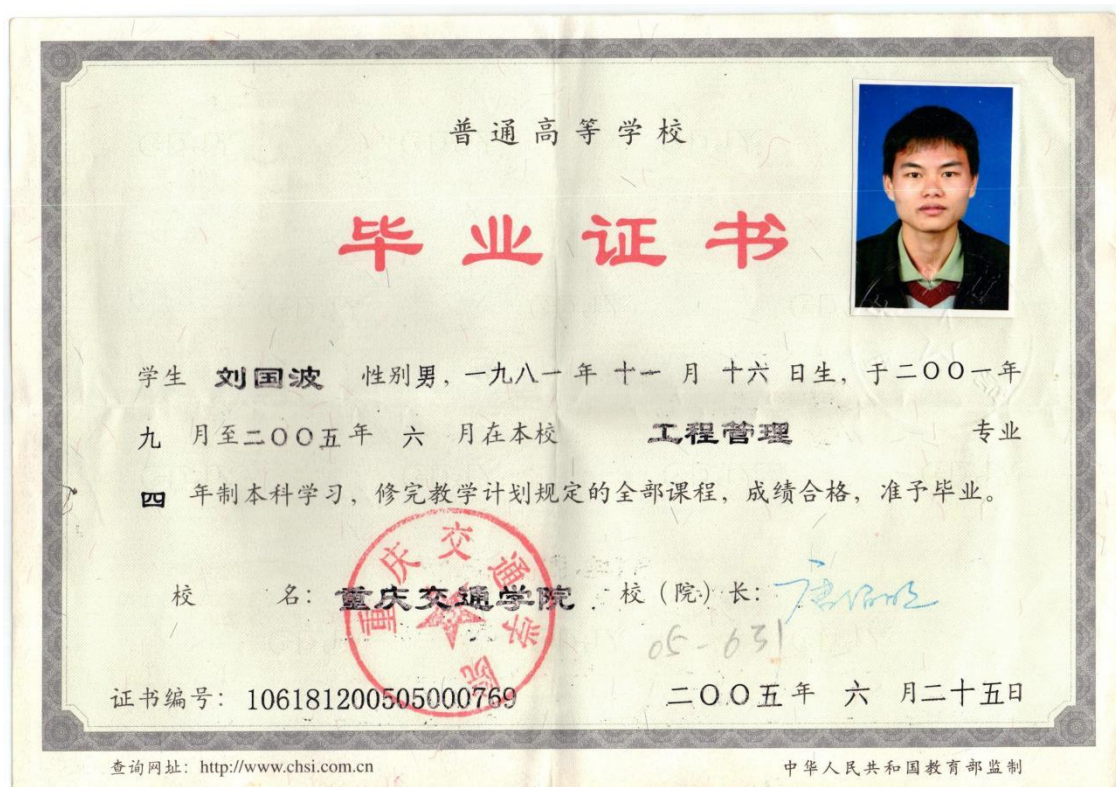 普通高等学校
毕业证书
学生 刘国波 性别男，一九八一年十一月十六日生，于二〇〇一年
九月至二〇〇五年 六 月在本校 工程管理 专业
四 年制本科学习，修完教学计划规定的全部课程，成绩合格，准予毕业。
校 名：重庆交通学院 校（院）长：
重庆交通学院
05-631
证书编号：106181200505000769 二〇〇五年 六 月二十五日
查询网址：http://www.chsi.com.cn 中华人民共和国教育部监制